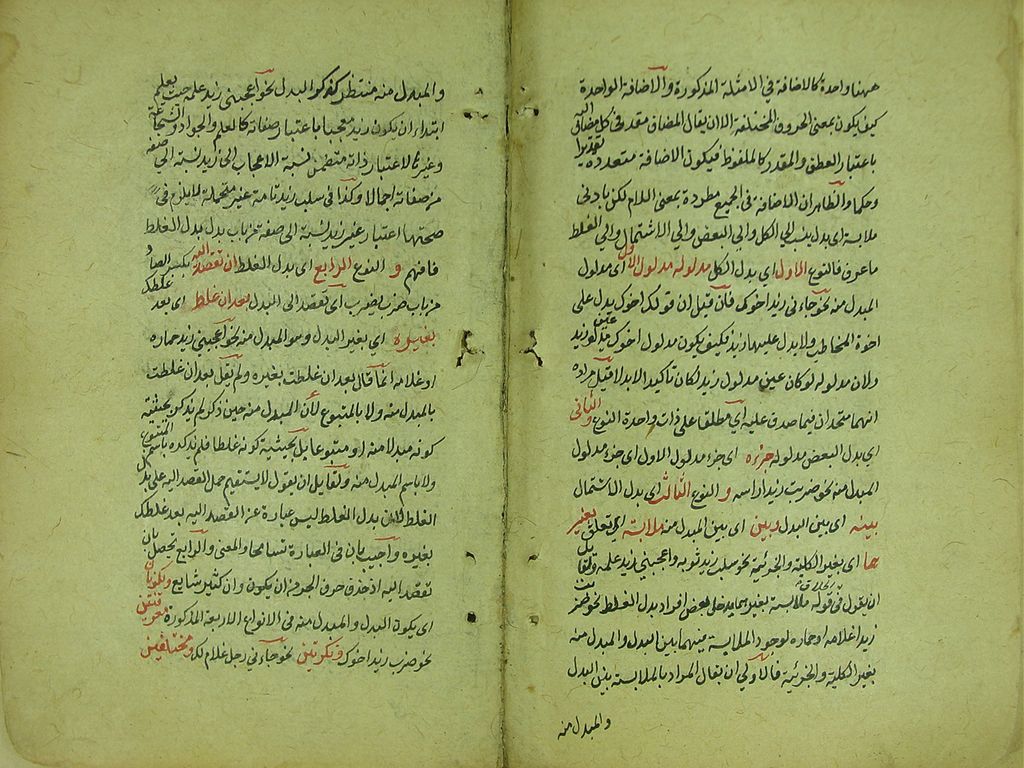 ههنا واحدة كالاضافة في الامثلة المذكورة والاضافة الواحدة
كيف يكون بمعنى الحروف المختلفة الا ان يقال المضاف مقدر في كل مضاف اليه
باعتبار العطف والمقدر كالملفوظ فيكون الاضافة متعددة تقديرا
وحكما والظاهر ان الاضافة في الجميع مطردة بمعنى اللام لكن بادنى
ملابسة اي بدل ينسب الى الكل والى البعض والى الاشتمال والى الغلط
ما عرف فالنوع الاول اي بدل الكل مدلوله مدلول الاول اي مدلول
المبدل منه نحو جاءني زيد اخوك فان قيل ان قولك اخوك يدل على
اخوة المخاطب ولا يدل عليها زيد فكيف يكون مدلول اخوك عين مدلول زيد
ولان مدلوله لو كان عين مدلول زيد لكان تأكيدا لا بدلا قيل مراده
انهما متحدان فيما صدق عليه اي مطلقا على ذات واحدة النوع والثاني
اي بدل البعض مدلوله جزءه اي جزء مدلول الاول اي جزء مدلول
المبدل منه نحو ضربت زيدا راسه و النوع الثالث اي بدل الاشتمال
بينه اي بين البدل وبين اي بين المبدل منه ملابسة اي تعلق بغير
هما اي بغير الكلية والجزئية نحو سلب زيد ثوبه واعجبني زيد علمه ولقائل
ان يقول في قوله ملابسة بغيرهما يدخل بعض افراد بدل الغلط نحو ضربت
زيدا غلامه او حماره لوجود الملابسة بينهما بين البدل والمبدل منه
بغير الكلية والجزئية فالاولى ان يقال المراد بالملابسة بين البدل
والمبدل منه
والمبدل منه منتظر كذكر البدل نحو اعجبني زيد علمه حيث يعلم
ابتداء ان يكون زيد معجبا باعتبار صفاته كالعلم والجواد والشجاعة
وغيرها لا باعتبار ذاته متضمن نسبة الاعجاب الى زيد نسبة الى صفة
من صفاته اجمالا وكذا في سلب زيد تامة غير محتملة لا يلزم في
صحتها اعتبار غير زيد نسبة الى صفة من باب بدل بدل الغلط
فافهم و النوع الرابع اي بدل الغلط ان تقصد اليه بكسر الصاد
من باب ضرب يضرب اي تقصد الى المبدل بعد ان غلطت اي بعد غلطك
بغيره اي بغير البدل وهو المبدل منه نحو اعجبني زيد حماره
او غلامه انما قال بعد ان غلطت بغيره ولم يقل بعد ان غلطت
بالمبدل منه ولا بالمتبوع لأن المبدل منه حين ذكر لم يذكر بحيثية
كونه مبدلا منه او متبوعا بل بحيثية كونه غلطا فلم يذكره باسم المتبوع
ولا باسم المبدل منه ولقايل ان يقول لا يستقيم حمل القصد اليه على بدل
الغلط لان بدل الغلط ليس عبارة عن القصد اليه بعد غلطك
بغيره واجيب بان في العبارة تسامحا والمعنى والرابع يحصل بان
تقصد اليه اذ حذف حرف الجر من ان يكون وان كثير شايع ويكونان
اي يكون البدل والمبدل منه في الانواع الاربعة المذكورة معرفتين
نحو ضرب زيد اخوك ونكرتين نحو جاءني رجل غلام لك ومختلفين